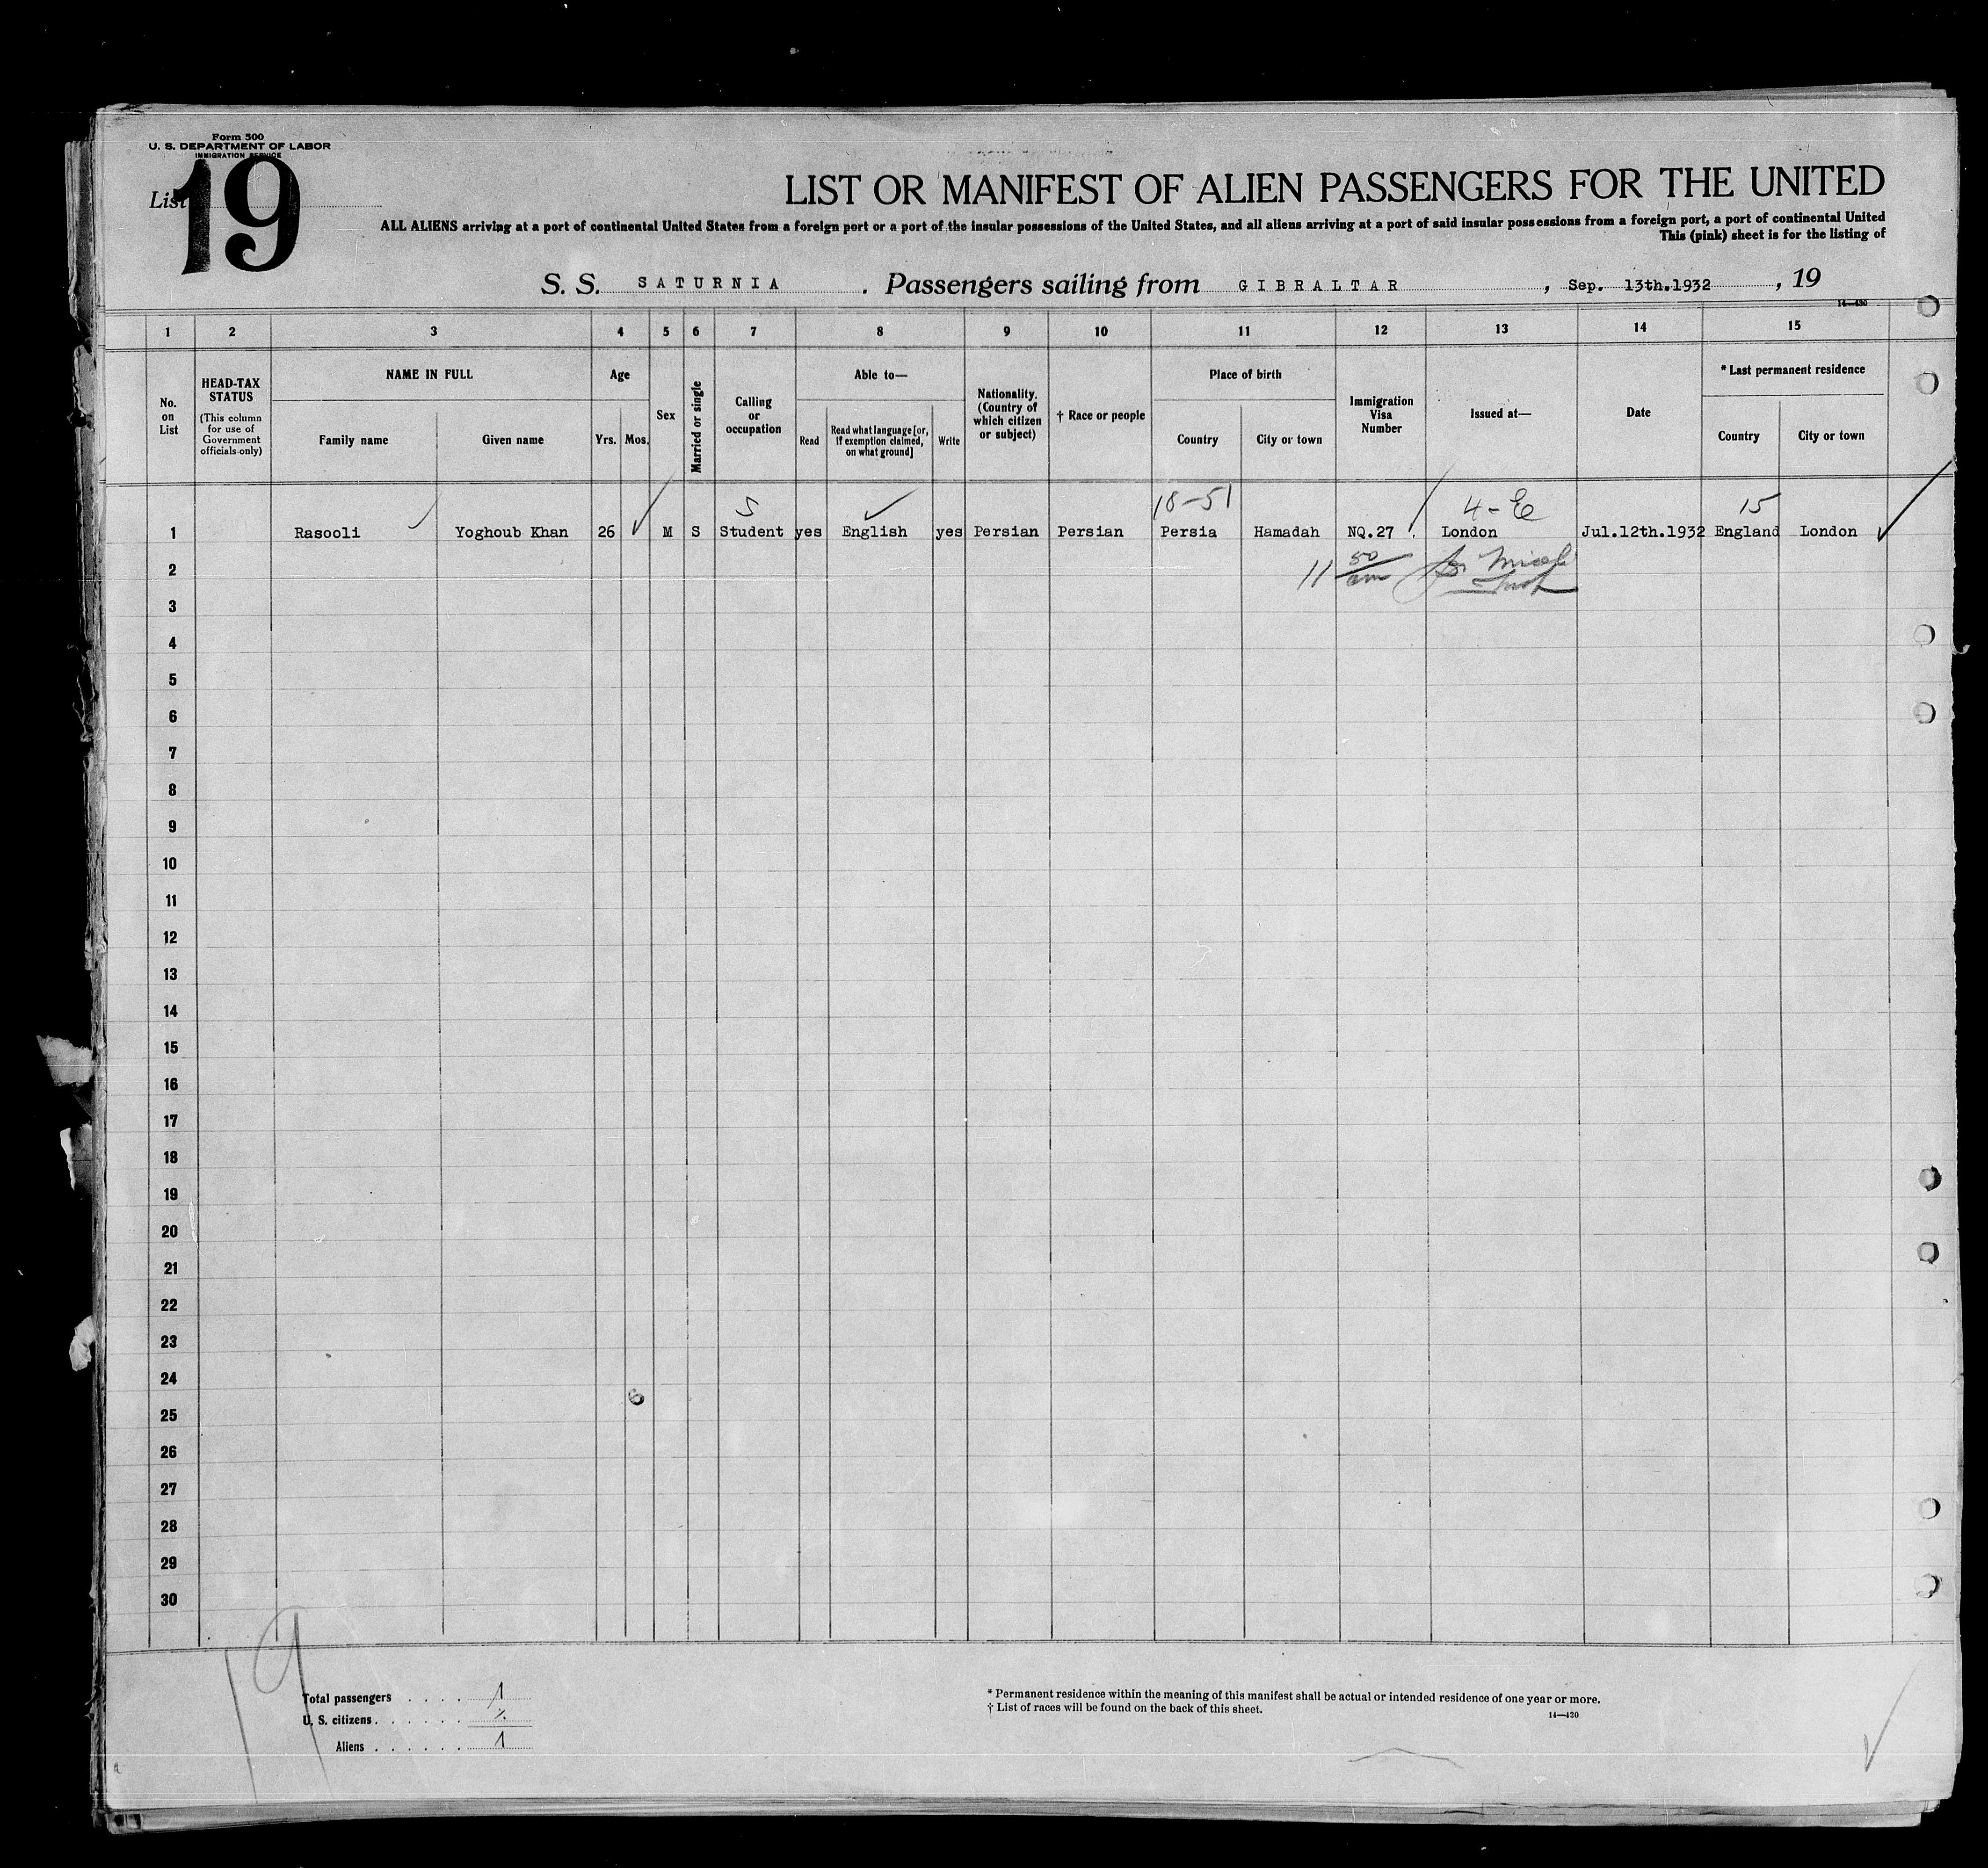 Form 500
U. S. DEPARTMENT OF LABOR
IMMIGRATION SERVICE
List 19
LIST OR MANIFEST OF ALIEN PASSENGERS FOR THE UNITED
ALL ALIENS arriving at a port of continental United States from a foreign port or a port of the insular possessions of the United States, and all aliens arriving at a port of said insular possessions from a foreign port, a port of continental United
This (pink) sheet is for the listing of
S. S. SATURNIA . Passengers sailing from GIBRALTAR , Sep. 13th.1932 , 19
14—430
1 2 3 4 5 6 7 8 9 10 11 12 13 14 15
No. on List
HEAD-TAX STATUS
(This column for use of Government officials only)
NAME IN FULL
Family name
Given name
Age
Yrs. Mos.
Sex
Married or single
Calling or occupation
Able to—
Read
Read what language [or, if exemption claimed, on what ground]
Write
Nationality. (Country of which citizen or subject)
† Race or people
Place of birth
Country
City or town
Immigration Visa Number
Issued at—
Date
* Last permanent residence
Country
City or town
S 18-51 4-E 15
1 Rasooli Yoghoub Khan 26 M S Student yes English yes Persian Persian Persia Hamadah NQ.27 London Jul.12th.1932 England London
2 11 50 am
3
4
5
6
7
8
9
10
11
12
13
14
15
16
17
18
19
20
21
22
23
24
25
26
27
28
29
30
19
Total passengers . . . . 1
U. S. citizens . . . . . .
Aliens . . . . . . 1
* Permanent residence within the meaning of this manifest shall be actual or intended residence of one year or more.
† List of races will be found on the back of this sheet.
14—430